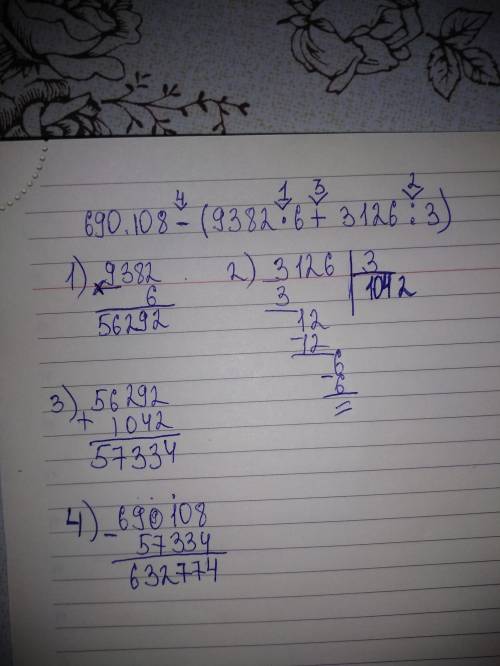 4 1 3 2
690.108 - (9382 · 6 + 3126 : 3)
1) 9382
× 6
56292
2) 3126 | 3
3 1042
12
- 12
6
- 6
=
3) 56292
+ 1042
57334
4) - 690108
57334
632774